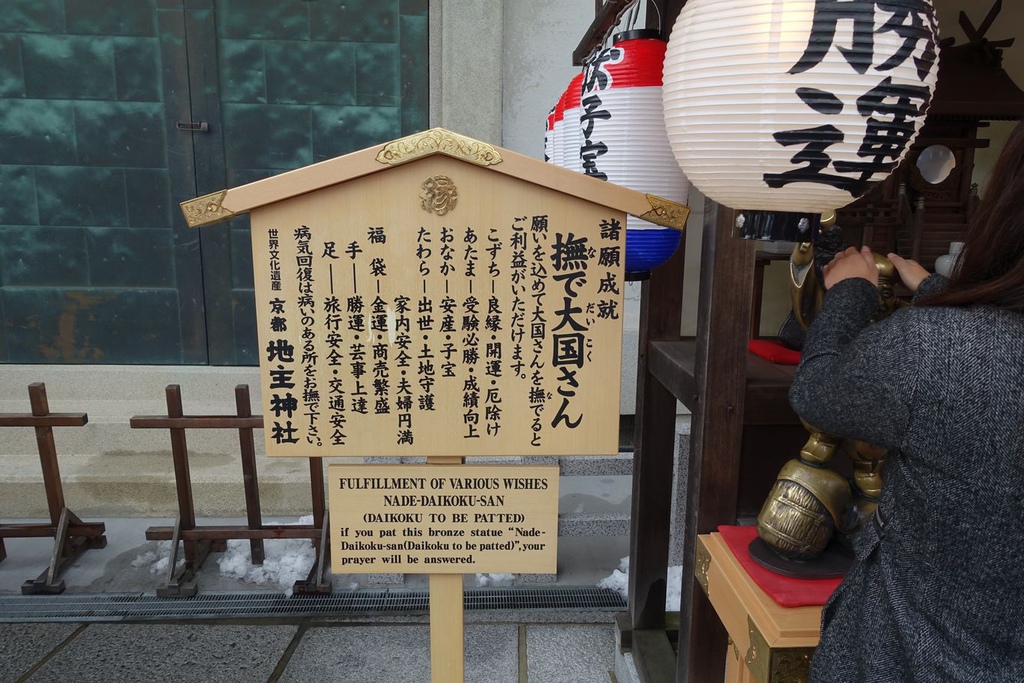 諸願成就
撫で大国さん
な だいこく
願いを込めて大国さんを撫でると
な
ご利益がいただけます。
こずち━良縁・開運・厄除け
あたま━受験必勝・成績向上
おなか━安産・子宝
たわら━出世・土地守護
家内安全・夫婦円満
福 袋━金運・商売繁盛
手━勝運・芸事上達
足━旅行安全・交通安全
病気回復は病いのある所をお撫で下さい。
世界文化遺産 京都 地主神社
FULFILLMENT OF VARIOUS WISHES
NADE-DAIKOKU-SAN
(DAIKOKU TO BE PATTED)
if you pat this bronze statue “Nade-
Daikoku-san(Daikoku to be patted)”,your
prayer will be answered.
勝運
子宝